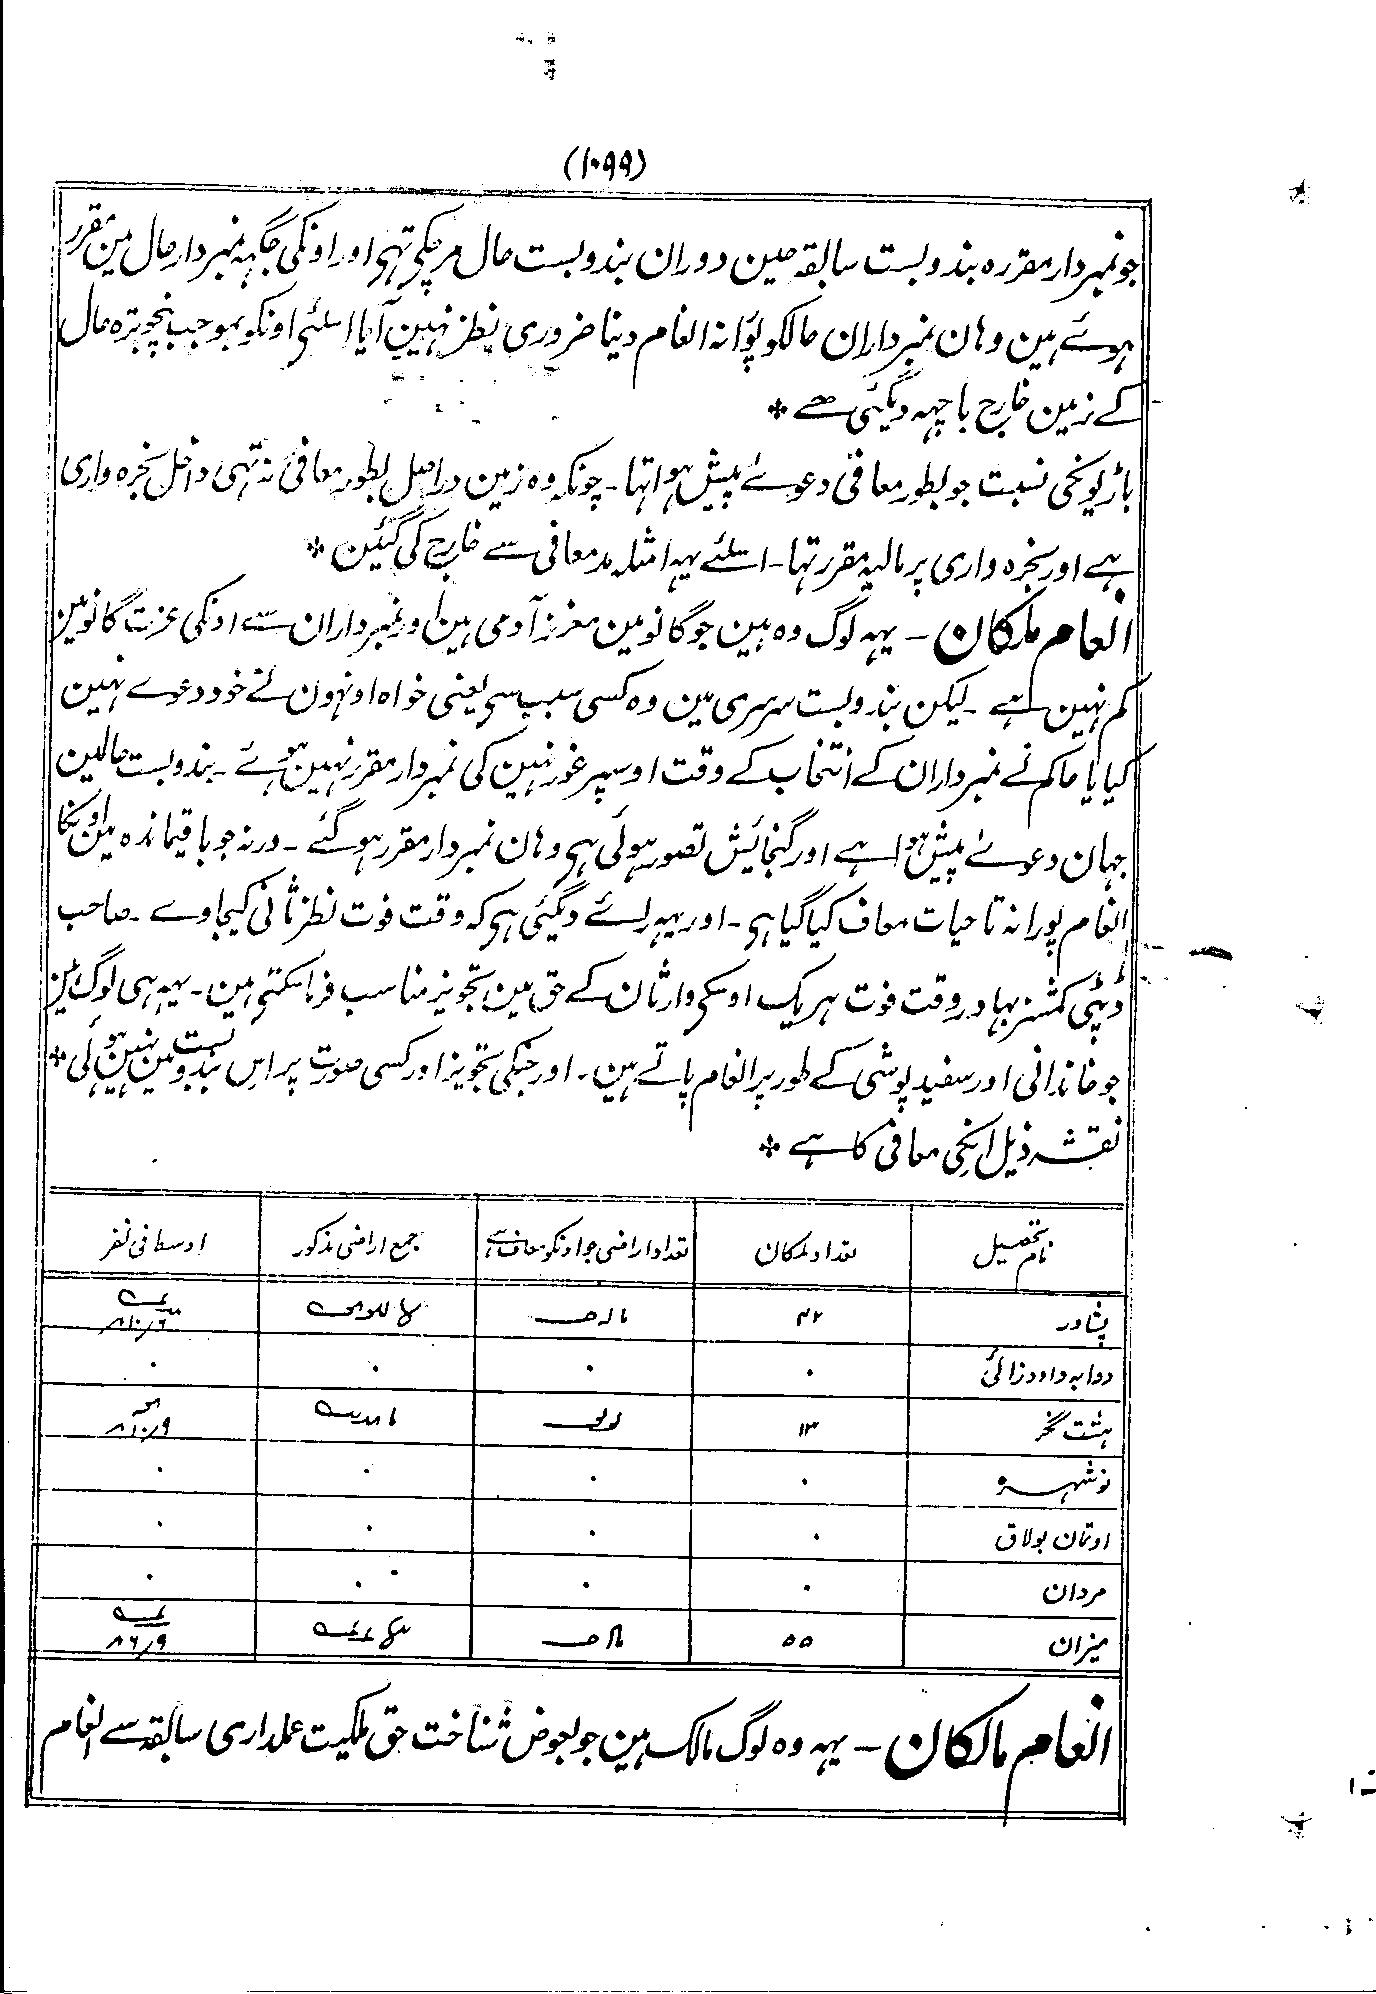 (١٠٩٩)
جو نمبردار مقررہ بندوبست سابقہ مین دوران بندوبست حال مر چکی تہی اور اونکی جگہہ نمبردار حال مین مقرر
ہوئے ہین وہان نمبرداران حال کو پورانہ انعام دینا ضروری نظر نہین آیا اسلئی اونکو بموجب تجویزہ حال
کے زمین خارج باچہہ دیگئی ہے *
باڑیونکی نسبت جو بطور معافی دعوے پیش ہوا تہا ۔ چونکہ وہ زمین دراصل بطور معافی نہ تہی داخل بخرہ واری
ہے اور بخرہ واری پر مالیہ مقرر تہا ۔ اسلئے یہہ امثلہ مد معافی سے خارج کی گئین *
انعام ملکان ۔ یہہ لوگ وہ ہین جو گانو مین معزز آدمی ہین اور نمبرداران سے اونکی عزت گانو مین
کم نہین ہے ۔ لیکن بندوبست سرسری مین وہ کسی سبب سی یعنی خواہ اونہون نے خود دعوے نہین
کیا یا حاکم نے نمبرداران کے انتخاب کے وقت اوسپر غور نہین کی نمبردار مقرر نہین ہوئے ۔ بندوبست حالمین
جہان دعوے پیش ہوا ہے اور گنجائیش تصور ہوئی ہی وہان نمبردار مقرر ہوگئے ۔ ورنہ جو باقیماندہ ہین اونکا
انعام پورانہ تا حیات معاف کیا گیا ہی ۔ اور یہہ رائے دیگئی ہی کہ وقت فوت نظر ثانی کیجاوے ۔ صاحب
ڈپٹی کمشنر بہادر وقت فوت ہر یک اوسکی وارثان کے حق مین تجویز مناسب فرماسکتی ہین ۔ یہہ ہی لوگ ہین
جو خاندانی اور سفید پوشی کے طور پر انعام پاتے ہین ۔ اور جنکی تجویز اور کسی صورت پر اس بندوبست مین نہین ہوئی *
نقشہ ذیل انکی معافی کا ہے *
نام تحصیل تعداد ملکان تعداد اراضی جو اونکو معاف ہے جمع اراضی مذکور اوسط فی نفر
پشاور ۴۲
دوابہ داودزائی ۰ ۰ ۰ ۰
ہشت نگر ۱۳
نوشہرہ ۰ ۰ ۰ ۰
اوتمان بولاق ۰ ۰ ۰ ۰
مردان ۰ ۰ ۰ ۰
میزان ۵۵
انعام مالکان ۔ یہہ وہ لوگ مالک ہین جو بعوض شناخت حق ملکیت عملداری سابقہ سے انعام